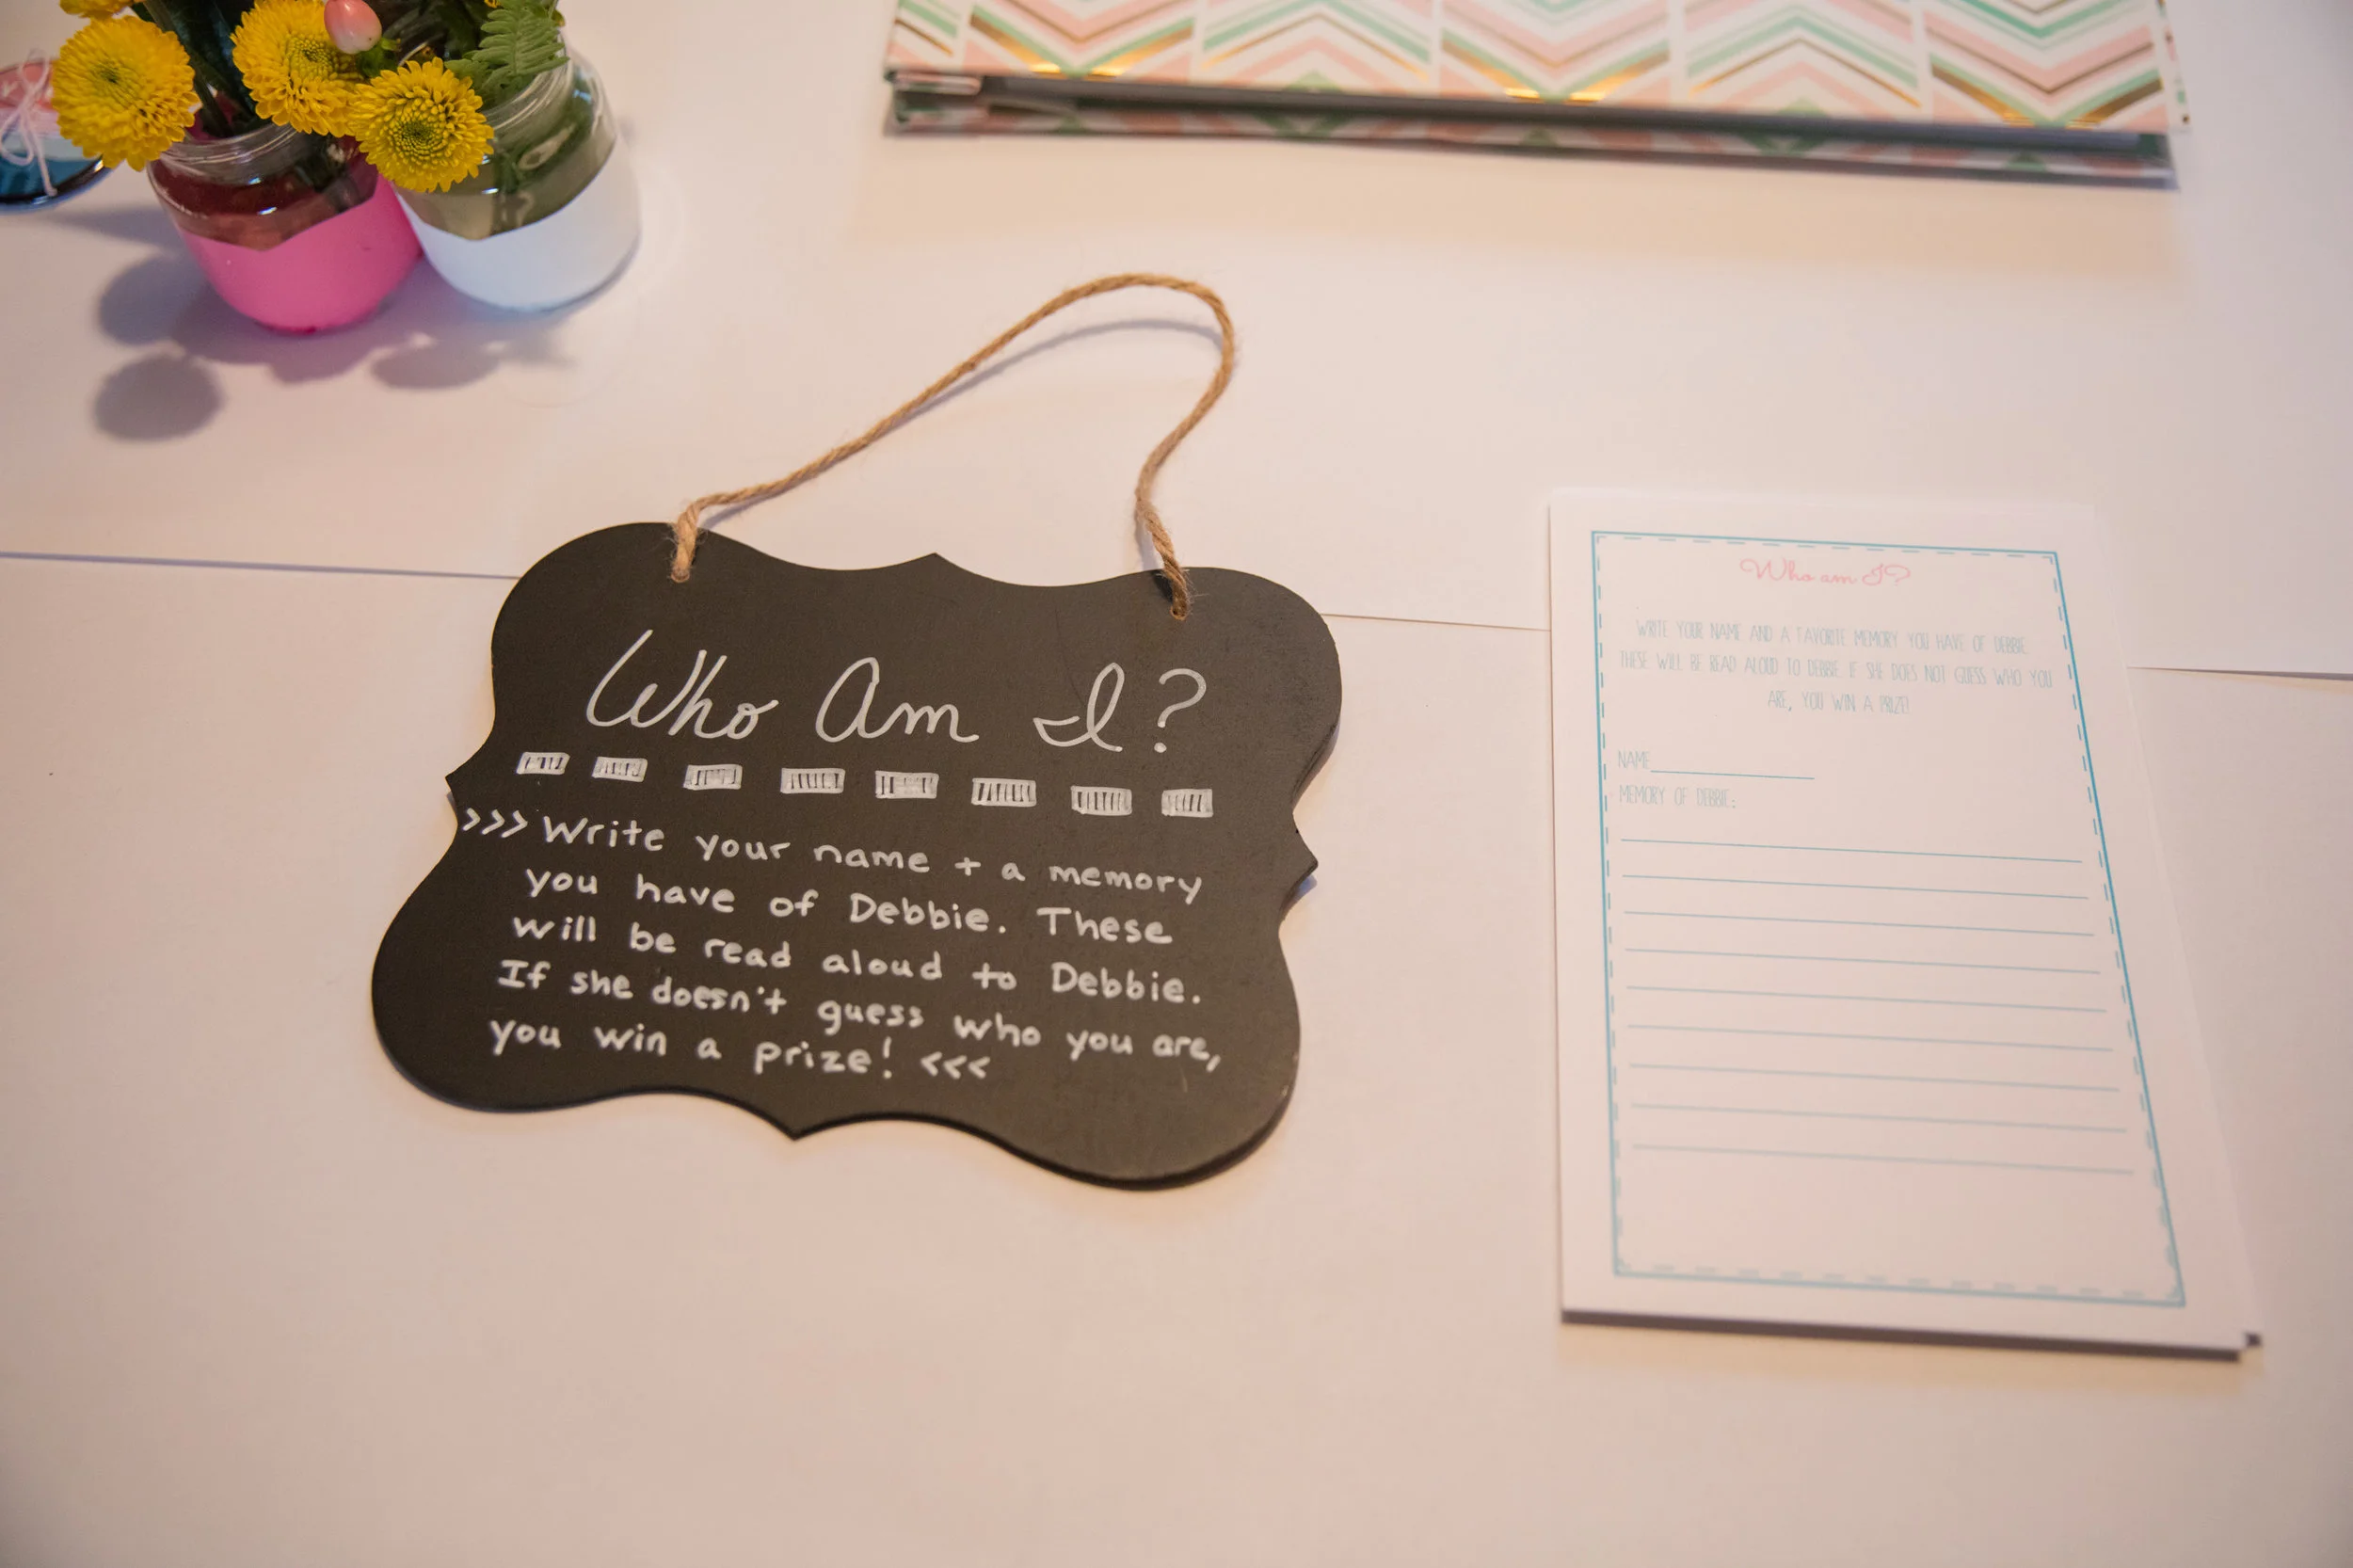 Who Am I?
>>> Write your name + a memory
you have of Debbie. These
will be read aloud to Debbie.
If she doesn't guess who you are,
you win a prize! <<<
Who am I?
WRITE YOUR NAME AND A FAVORITE MEMORY YOU HAVE OF DEBBIE.
THESE WILL BE READ ALOUD TO DEBBIE. IF SHE DOES NOT GUESS WHO YOU
ARE, YOU WIN A PRIZE!
NAME
MEMORY OF DEBBIE: